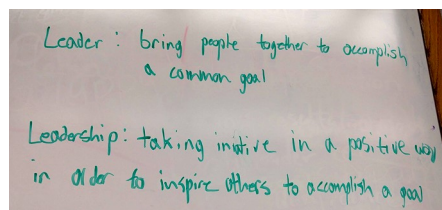 Leader : bring people together to accomplish
a common goal
Leadership: taking initive in a positive way
in order to inspire others to accomplish a goal